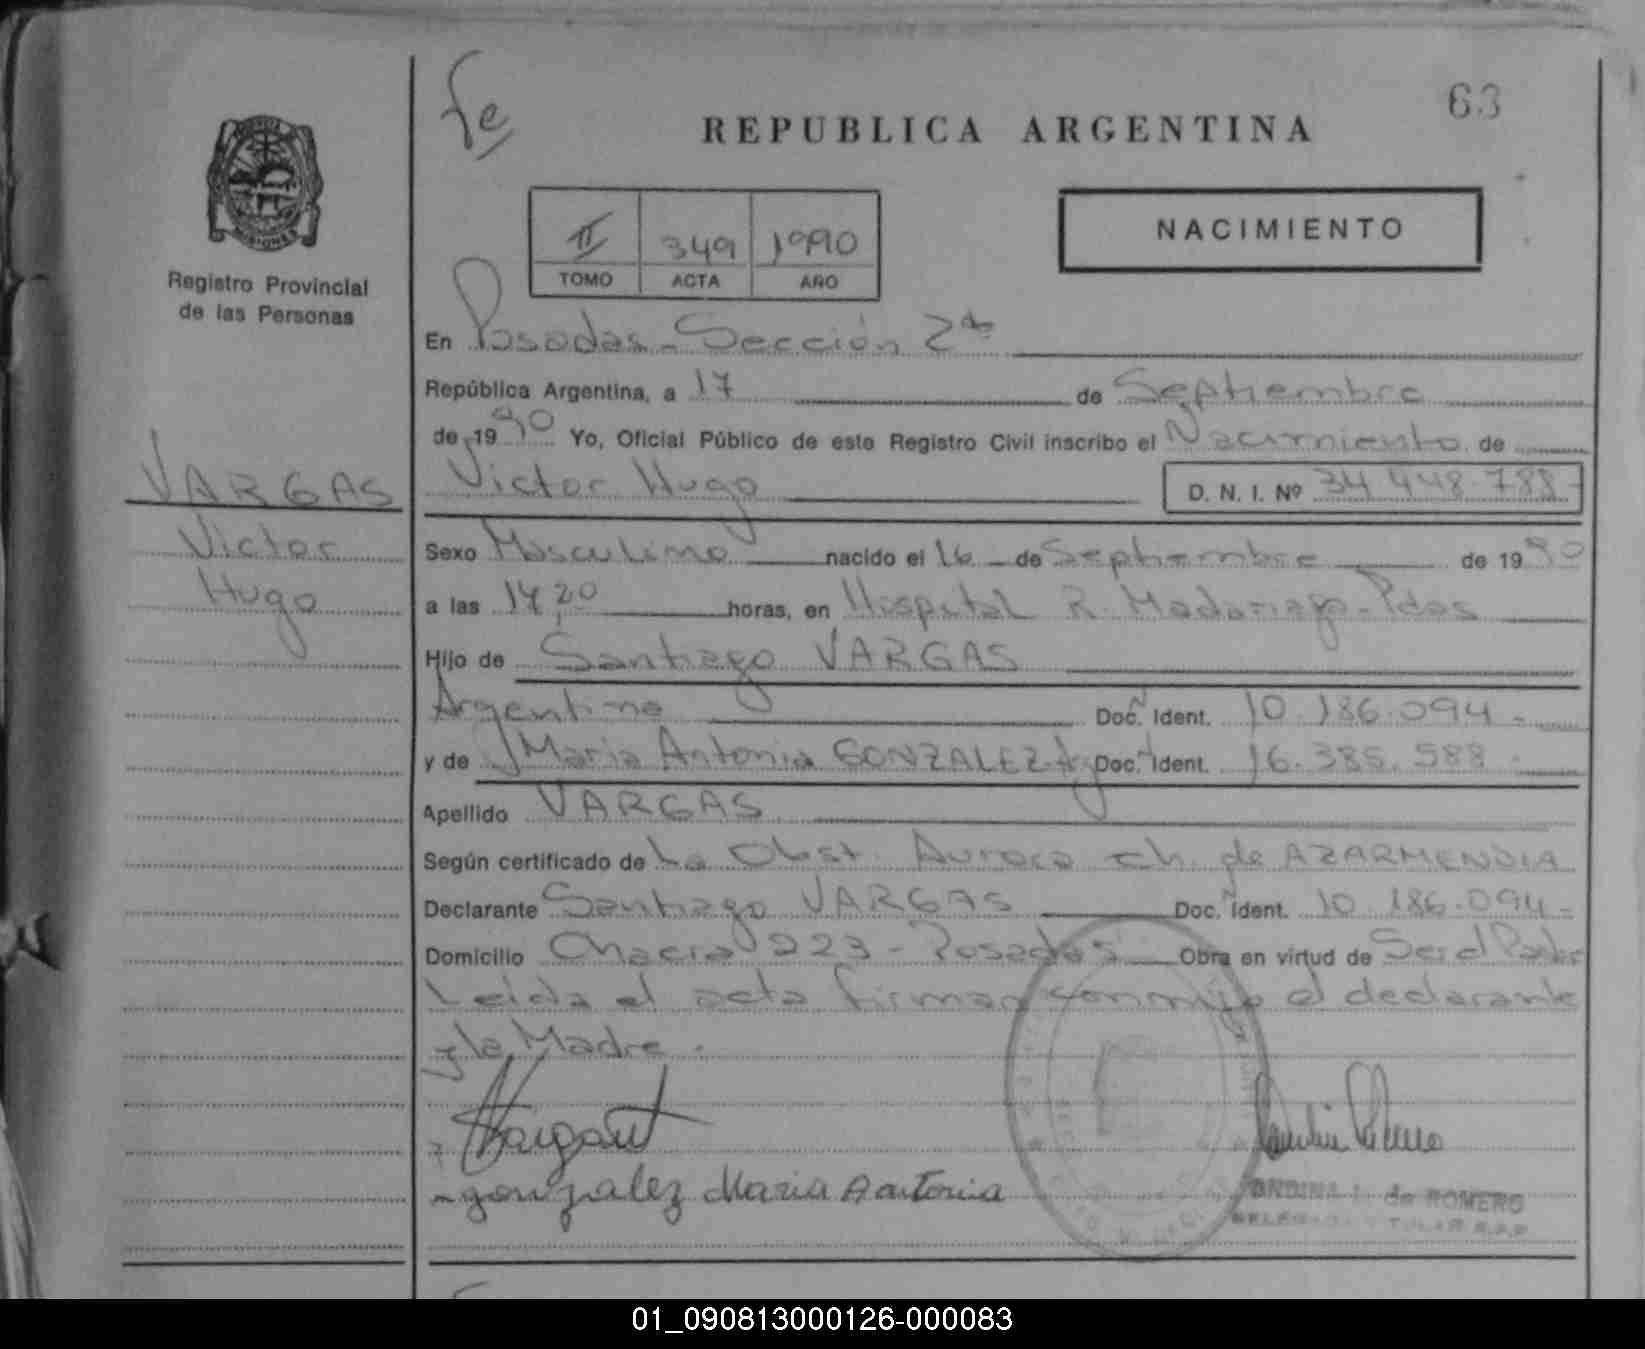 fe
63
REPUBLICA ARGENTINA
MISIONES
Registro Provincial
de las Personas
II 349 1990
TOMO ACTA AÑO
NACIMIENTO
En Posadas - Sección 2da
República Argentina, a 17 de Septiembre
de 1990 Yo, Oficial Público de este Registro Civil inscribo el Nacimiento de
VARGAS
Victor Hugo D. N. I. Nº 34.448.788-
Victor
Hugo
Sexo Masculino nacido el 16 de Septiembre de 1990
a las 14,20 horas, en Hospital R. Madariaga - Pdas
Hijo de Santiago VARGAS
Argentino Doc. Ident. 10.186.094-
y de Maria Antonia GONZALEZ Arg Doc. Ident. 16.385.588-
Apellido VARGAS
Según certificado de La Obst. Aurora Ch. de AZARMENDIA
Declarante Santiago VARGAS Doc. Ident. 10.186.094-
Domicilio Chacra 223 - Posadas Obra en virtud de Ser el Padre
Leida el acta firman conmigo el declarante
y la Madre.
gonzalez Maria Antonia
de ROMERO
01_090813000126-000083